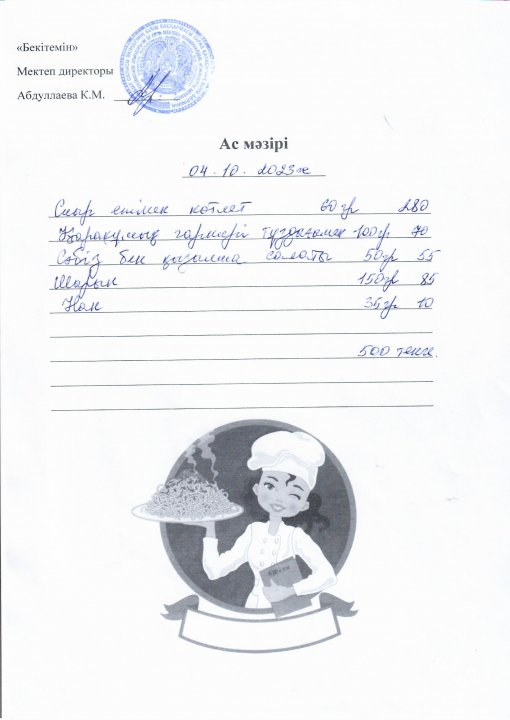 «Бекітемін»
Мектеп директоры
Абдуллаева К.М.
Ас мәзірі
04.10.2023ж
Сиыр етімен котлет 60гр 280
Қарақұмық гарнирі тұздықпен 100гр. 70
Сәбіз бен қызылша салаты 50гр 55
Шырын 150гр 85
Нан 35гр 10
500 тенге.